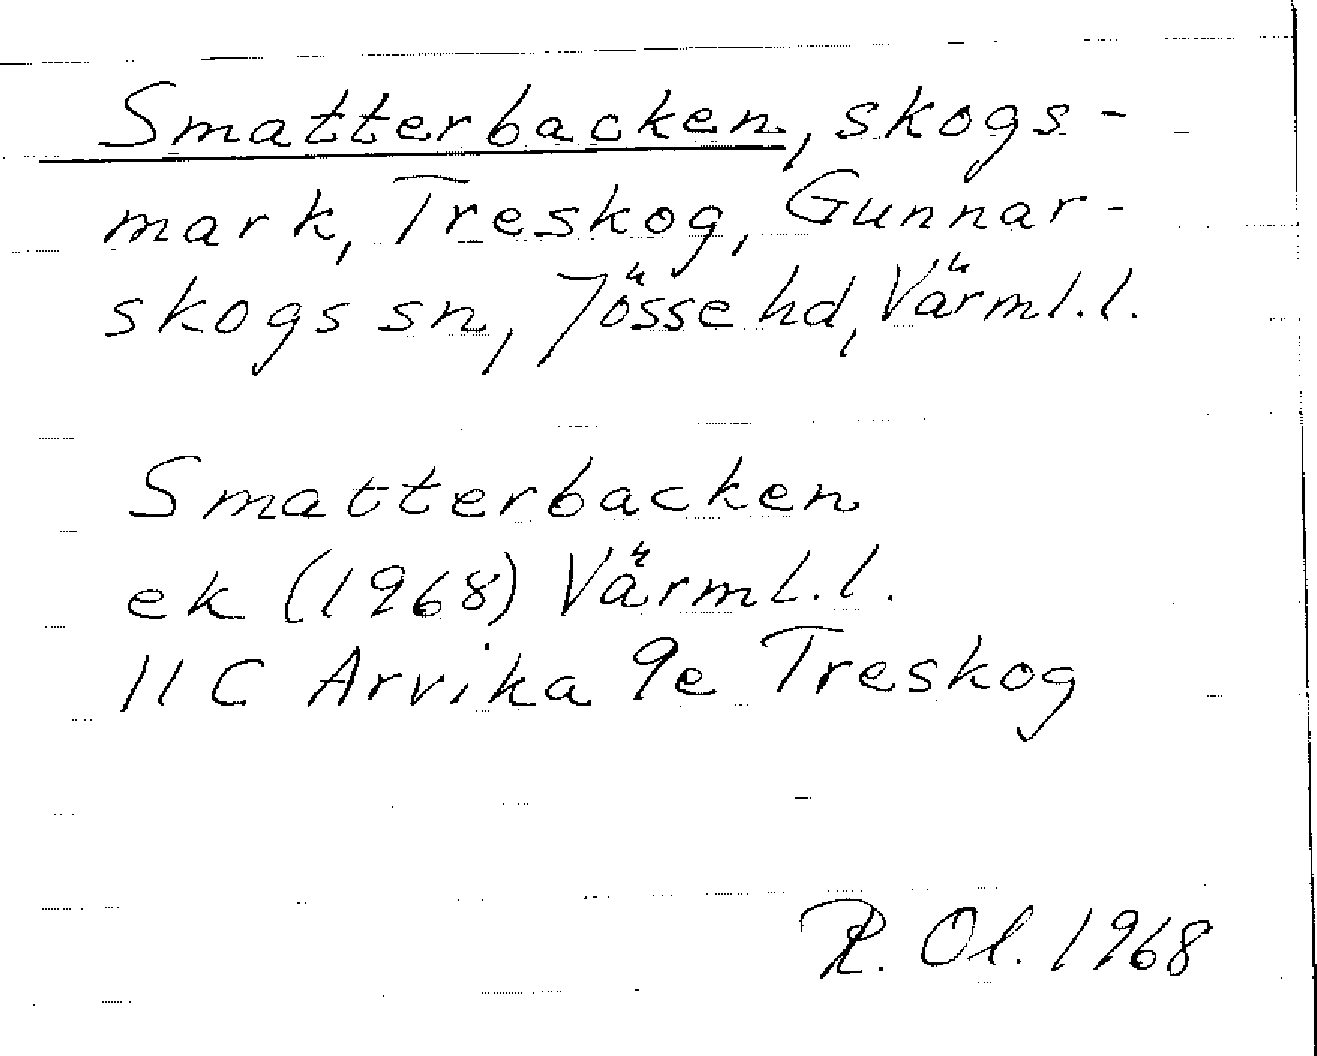 Smatterbacken, skogs-
mark, Treskog, Gunnar-
skogs sn, Jösse hd, Värml.l.
Smatterbacken
ek (1968) Värml.l.
11 C Arvika 9e Treskog
R. Ol. 1968